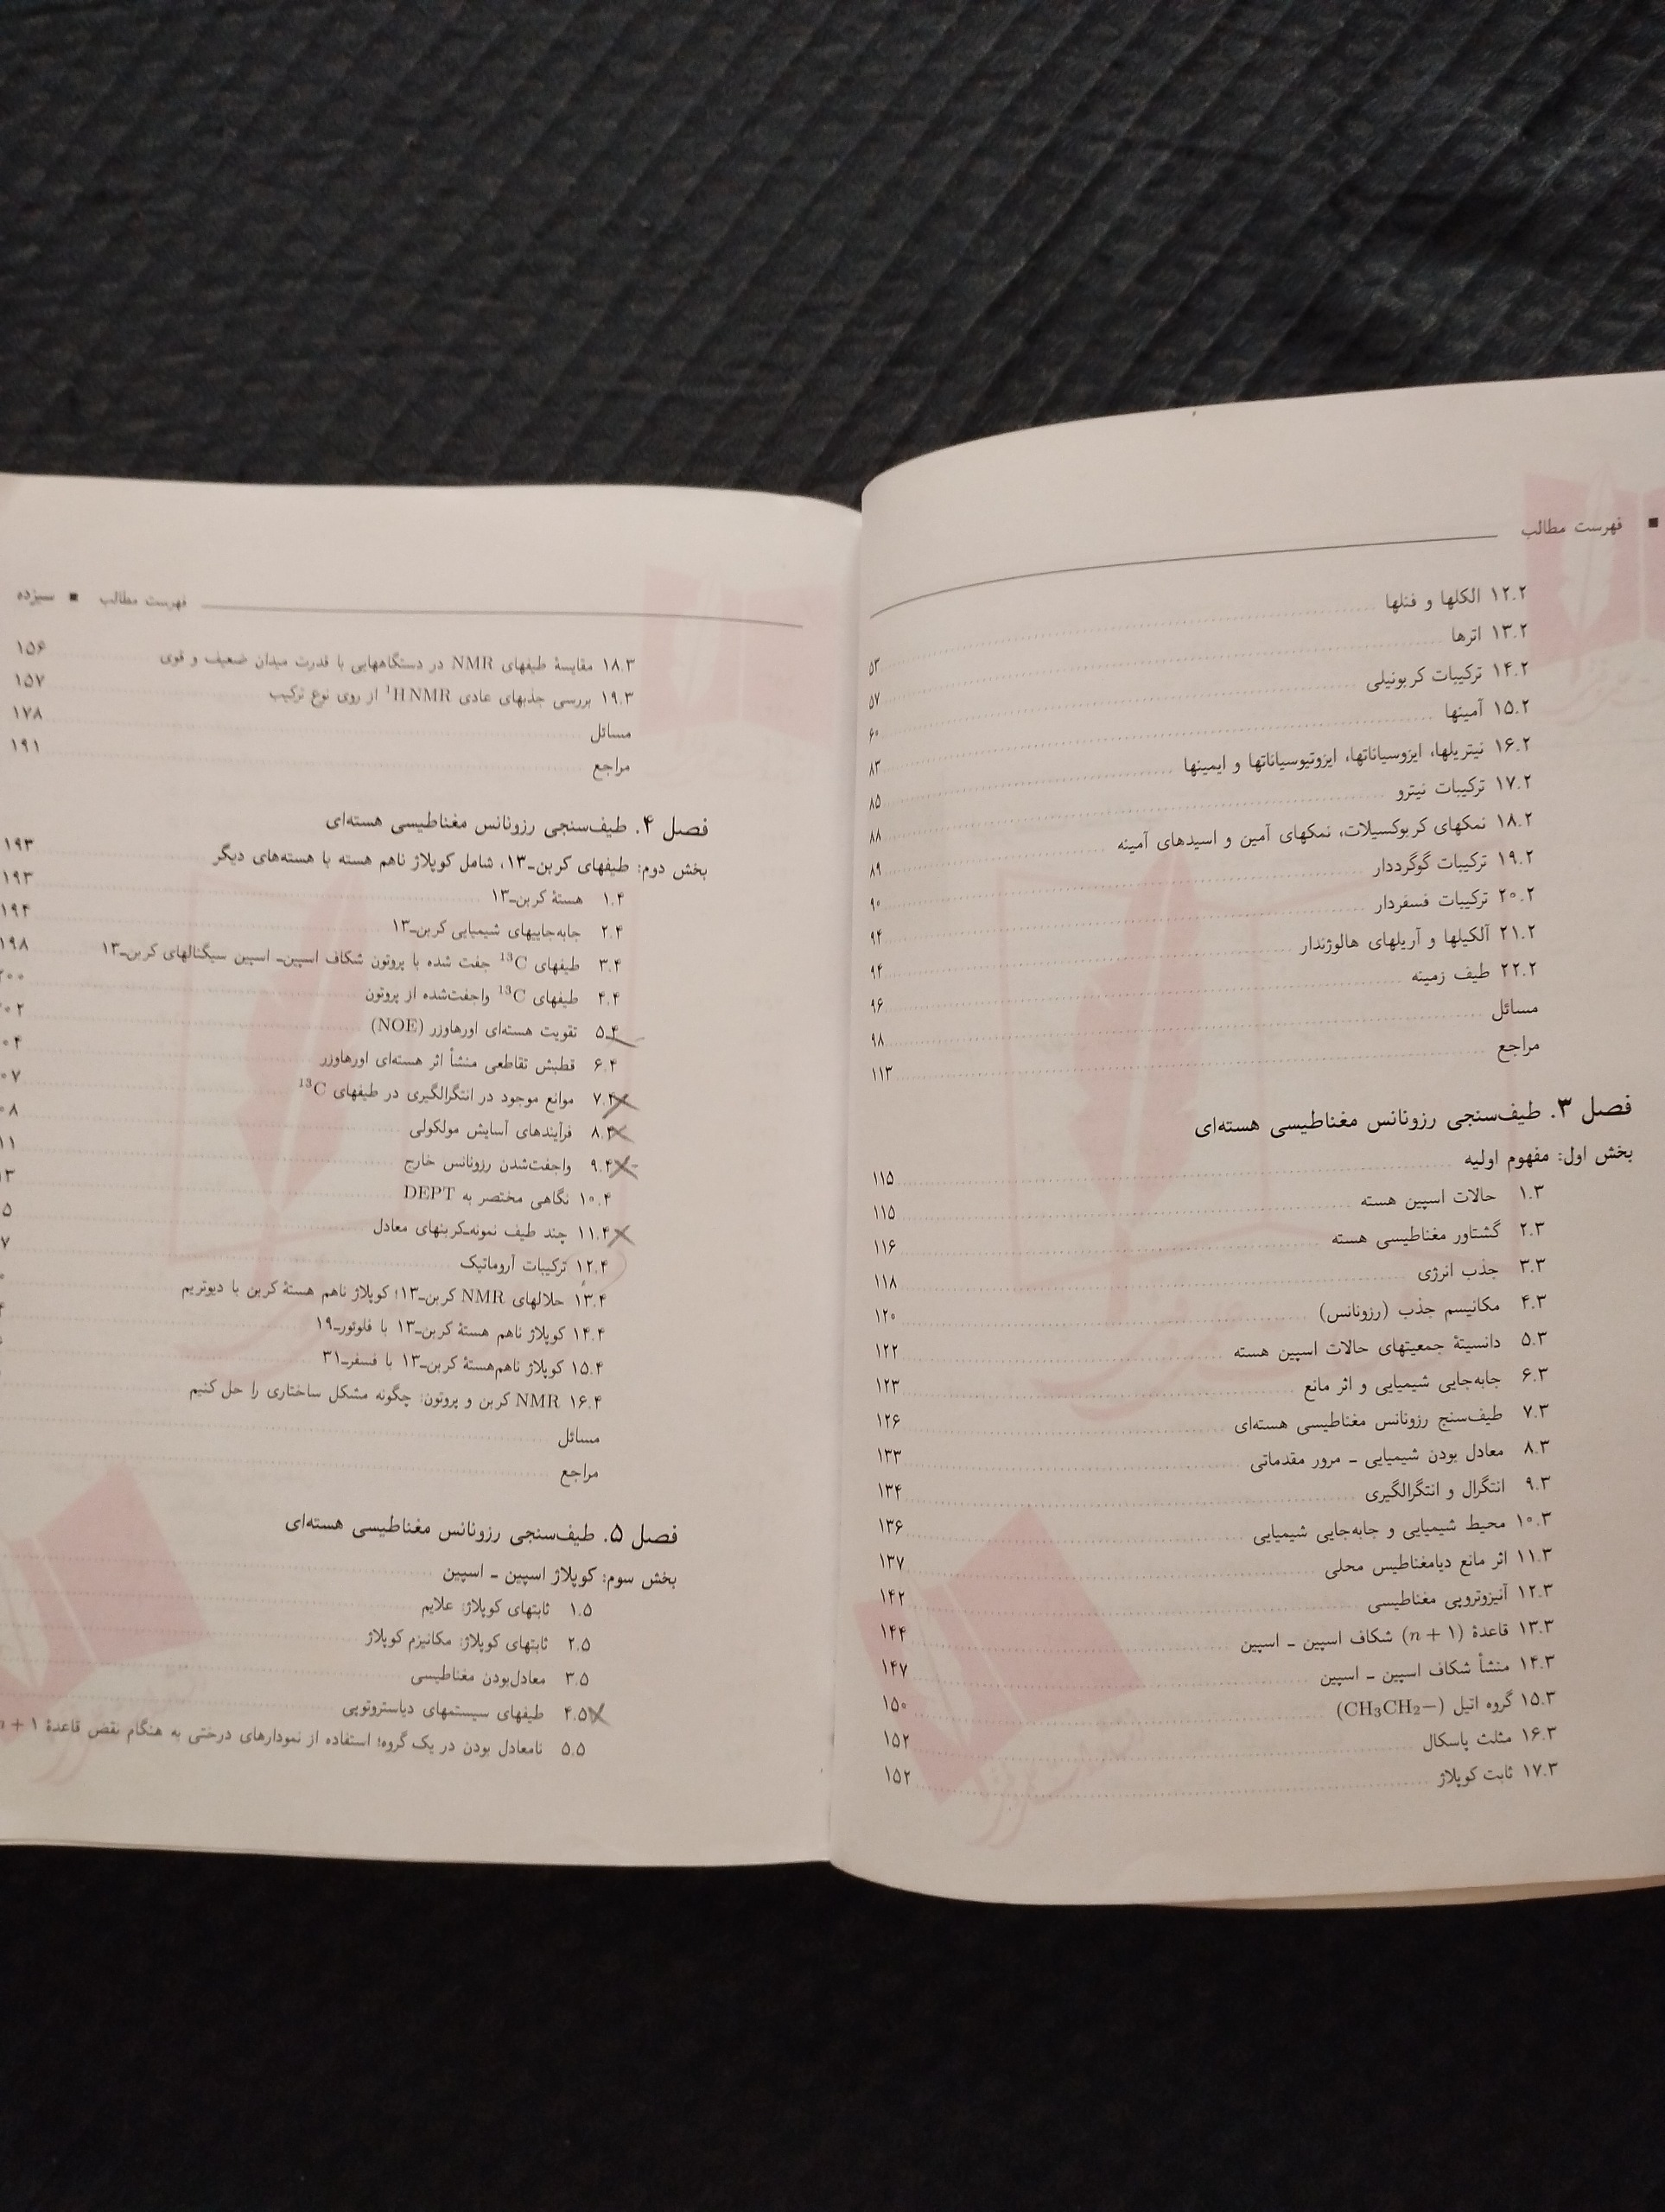 ■ فهرست مطالب
۱۲.۲ الکلها و فنلها
۱۳.۲ اترها ۵۳
۱۴.۲ ترکیبات کربونیلی ۵۷
۱۵.۲ آمینها ۶۰
۱۶.۲ نیتریلها، ایزوسیاناتها، ایزوتیوسیاناتها و ایمینها ۸۳
۱۷.۲ ترکیبات نیترو ۸۵
۱۸.۲ نمکهای کربوکسیلات، نمکهای آمین و اسیدهای آمینه ۸۸
۱۹.۲ ترکیبات گوگرددار ۸۹
۲۰.۲ ترکیبات فسفردار ۹۰
۲۱.۲ آلکیلها و آریلهای هالوژندار ۹۴
۲۲.۲ طیف زمینه ۹۴
مسائل ۹۶
مراجع ۹۸
۱۱۳
فصل ۳. طیف‌سنجی رزونانس مغناطیسی هسته‌ای
بخش اول: مفهوم اولیه ۱۱۵
۱.۳ حالات اسپین هسته ۱۱۵
۲.۳ گشتاور مغناطیسی هسته ۱۱۶
۳.۳ جذب انرژی ۱۱۸
۴.۳ مکانیسم جذب (رزونانس) ۱۲۰
۵.۳ دانسیتهٔ جمعیتهای حالات اسپین هسته ۱۲۲
۶.۳ جابه‌جایی شیمیایی و اثر مانع ۱۲۳
۷.۳ طیف‌سنج رزونانس مغناطیسی هسته‌ای ۱۲۶
۸.۳ معادل بودن شیمیایی ـ مرور مقدماتی ۱۳۳
۹.۳ انتگرال و انتگرالگیری ۱۳۴
۱۰.۳ محیط شیمیایی و جابه‌جایی شیمیایی ۱۳۶
۱۱.۳ اثر مانع دیامغناطیس محلی ۱۳۷
۱۲.۳ آنیزوتروپی مغناطیسی ۱۴۲
۱۳.۳ قاعدهٔ (n + ۱) شکاف اسپین ـ اسپین ۱۴۴
۱۴.۳ منشأ شکاف اسپین ـ اسپین ۱۴۷
۱۵.۳ گروه اتیل (CH₃CH₂−) ۱۵۰
۱۶.۳ مثلث پاسکال ۱۵۲
۱۷.۳ ثابت کوپلاژ ۱۵۲
فهرست مطالب ■ سیزده
۱۸.۳ مقایسهٔ طیفهای NMR در دستگاههایی با قدرت میدان ضعیف و قوی ۱۵۶
۱۹.۳ بررسی جذبهای عادی ¹H NMR از روی نوع ترکیب ۱۵۷
مسائل ۱۷۸
مراجع ۱۹۱
فصل ۴. طیف‌سنجی رزونانس مغناطیسی هسته‌ای
بخش دوم: طیفهای کربن-۱۳، شامل کوپلاژ ناهم هسته با هسته‌های دیگر ۱۹۳
۱.۴ هستهٔ کربن-۱۳ ۱۹۳
۲.۴ جابه‌جاییهای شیمیایی کربن-۱۳ ۱۹۴
۳.۴ طیفهای ¹³C جفت شده با پروتون شکاف اسپین- اسپین سیگنالهای کربن-۱۳ ۱۹۸
۴.۴ طیفهای ¹³C واجفت‌شده از پروتون
۵.۴ تقویت هسته‌ای اورهاوزر (NOE)
۶.۴ قطبش تقاطعی منشأ اثر هسته‌ای اورهاوزر
۷.۴ موانع موجود در انتگرالگیری در طیفهای ¹³C
۸.۴ فرآیندهای آسایش مولکولی
۹.۴ واجفت‌شدن رزونانس خارج
۱۰.۴ نگاهی مختصر به DEPT
۱۱.۴ چند طیف نمونه-کربنهای معادل
۱۲.۴ ترکیبات آروماتیک
۱۳.۴ حلالهای NMR کربن-۱۳؛ کوپلاژ ناهم هستهٔ کربن با دیوتریم
۱۴.۴ کوپلاژ ناهم هستهٔ کربن-۱۳ با فلوئور-۱۹
۱۵.۴ کوپلاژ ناهم‌هستهٔ کربن-۱۳ با فسفر-۳۱
۱۶.۴ NMR کربن و پروتون: چگونه مشکل ساختاری را حل کنیم
مسائل
مراجع
فصل ۵. طیف‌سنجی رزونانس مغناطیسی هسته‌ای
بخش سوم: کوپلاژ اسپین ـ اسپین
۱.۵ ثابتهای کوپلاژ: علایم
۲.۵ ثابتهای کوپلاژ: مکانیزم کوپلاژ
۳.۵ معادل‌بودن مغناطیسی
۴.۵ طیفهای سیستمهای دیاستروتوپی
۵.۵ نامعادل بودن در یک گروه؛ استفاده از نمودارهای درختی به هنگام نقض قاعدهٔ n + ۱